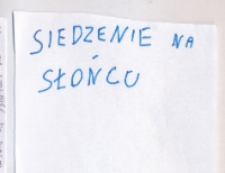 SIEDZENIE NA
SŁOŃCU